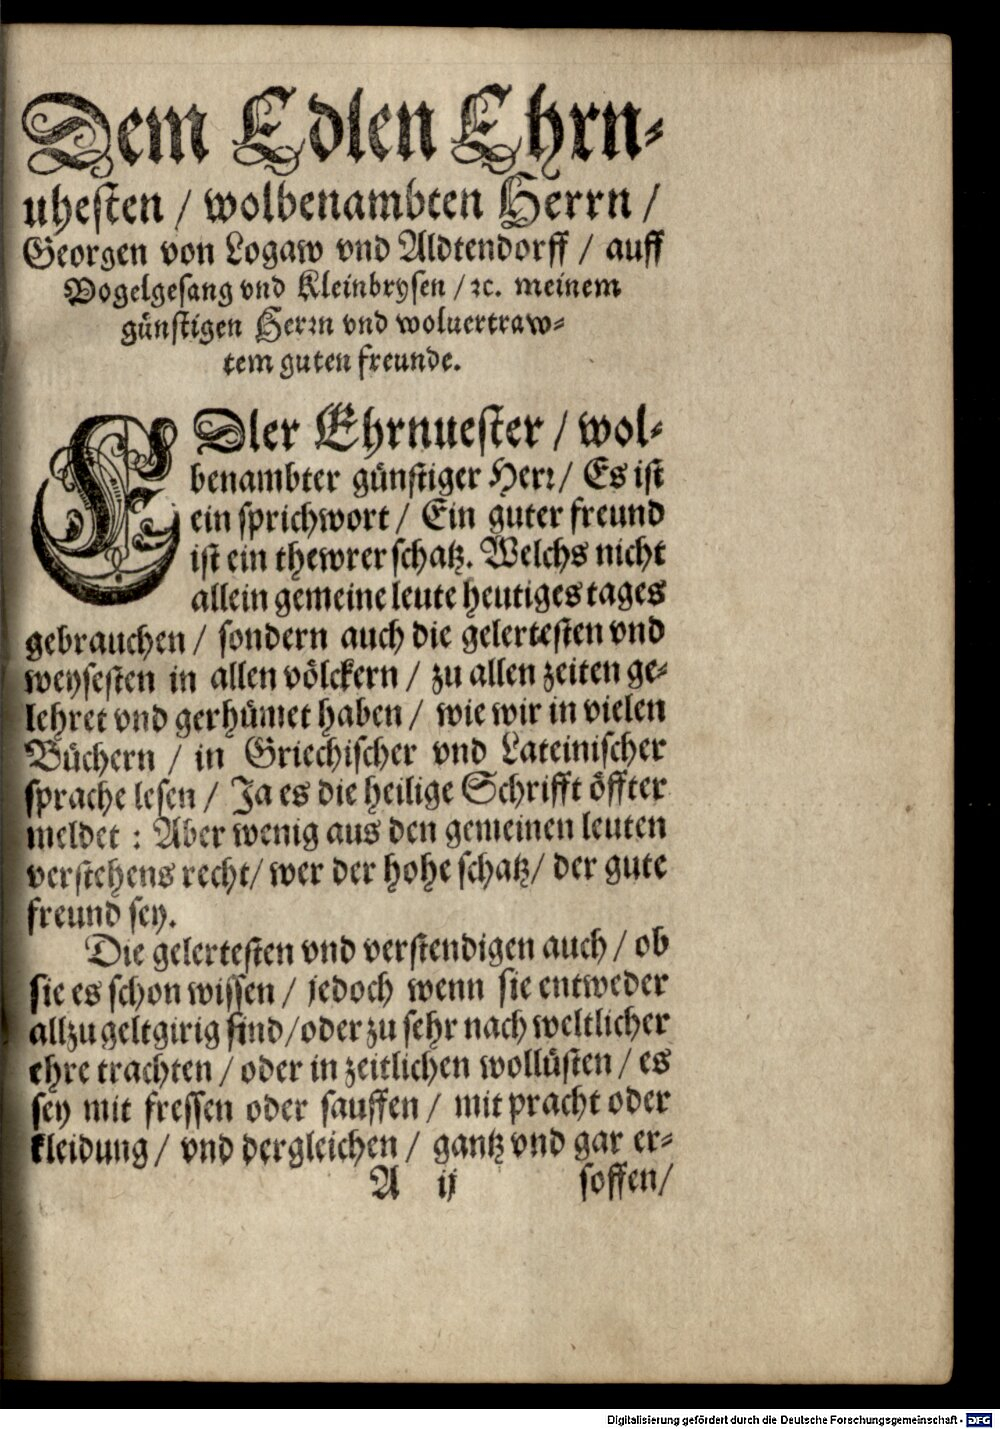 Dem Edlen Ehrn-
uhesten / wolbenambten Herrn /
Georgen von Logaw vnd Aldtendorff / auff
Vogelgesang vnd Kleinbrysen / ꝛc. meinem
günstigen Herꝛn vnd woluertraw-
tem guten freunde.
EDler Ehrnuester / wol-
benambter günstiger Herꝛ / Es ist
ein sprichwort / Ein guter freund
ist ein thewrer schatz. Welchs nicht
allein gemeine leute heutiges tages
gebrauchen / sondern auch die gelertesten vnd
weysesten in allen völckern / zu allen zeiten ge-
lehret vnd gerhümet haben / wie wir in vielen
Büchern / in Griechischer vnd Lateinischer
sprache lesen / Ja es die heilige Schrifft öffter
meldet : Aber wenig aus den gemeinen leuten
verstehens recht / wer der hohe schatz / der gute
freund sey.
Die gelertesten vnd verstendigen auch / ob
sie es schon wissen / jedoch wenn sie entweder
allzu geltgirig sind / oder zu sehr nach weltlicher
ehre trachten / oder in zeitlichen wollüsten / es
sey mit fressen oder sauffen / mit pracht oder
kleidung / vnd dergleichen / gantz vnd gar er-
A ij soffen /
Digitalisierung gefördert durch die Deutsche Forschungsgemeinschaft - DFG